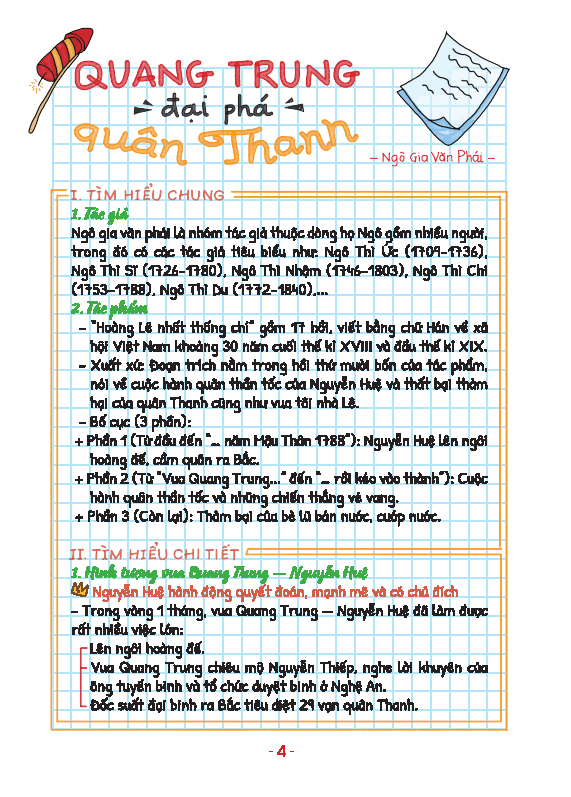 QUANG TRUNG
đại phá
quân Thanh
– Ngô Gia Văn Phái –
I. TÌM HIỂU CHUNG
1. Tác giả
Ngô gia văn phái là nhóm tác giả thuộc dòng họ Ngô gồm nhiều người,
trong đó có các tác giả tiêu biểu như: Ngô Thì Ức (1709-1736),
Ngô Thì Sĩ (1726-1780), Ngô Thì Nhậm (1746-1803), Ngô Thì Chí
(1753-1788), Ngô Thì Du (1772-1840),...
2. Tác phẩm
– "Hoàng Lê nhất thống chí" gồm 17 hồi, viết bằng chữ Hán về xã
hội Việt Nam khoảng 30 năm cuối thế kỉ XVIII và đầu thế kỉ XIX.
– Xuất xứ: Đoạn trích nằm trong hồi thứ mười bốn của tác phẩm,
nói về cuộc hành quân thần tốc của Nguyễn Huệ và thất bại thảm
hại của quân Thanh cũng như vua tôi nhà Lê.
– Bố cục (3 phần):
+ Phần 1 (Từ đầu đến "... năm Mậu Thân 1788"): Nguyễn Huệ lên ngôi
hoàng đế, cầm quân ra Bắc.
+ Phần 2 (Từ "Vua Quang Trung..." đến "... rồi kéo vào thành"): Cuộc
hành quân thần tốc và những chiến thắng vẻ vang.
+ Phần 3 (Còn lại): Thảm bại của bè lũ bán nước, cướp nước.
II. TÌM HIỂU CHI TIẾT
1. Hình tượng vua Quang Trung – Nguyễn Huệ
Nguyễn Huệ hành động quyết đoán, mạnh mẽ và có chủ đích
– Trong vòng 1 tháng, vua Quang Trung – Nguyễn Huệ đã làm được
rất nhiều việc lớn:
Lên ngôi hoàng đế.
Vua Quang Trung chiêu mộ Nguyễn Thiếp, nghe lời khuyên của
ông tuyển binh và tổ chức duyệt binh ở Nghệ An.
Đốc suất đại binh ra Bắc tiêu diệt 29 vạn quân Thanh.
- 4 -